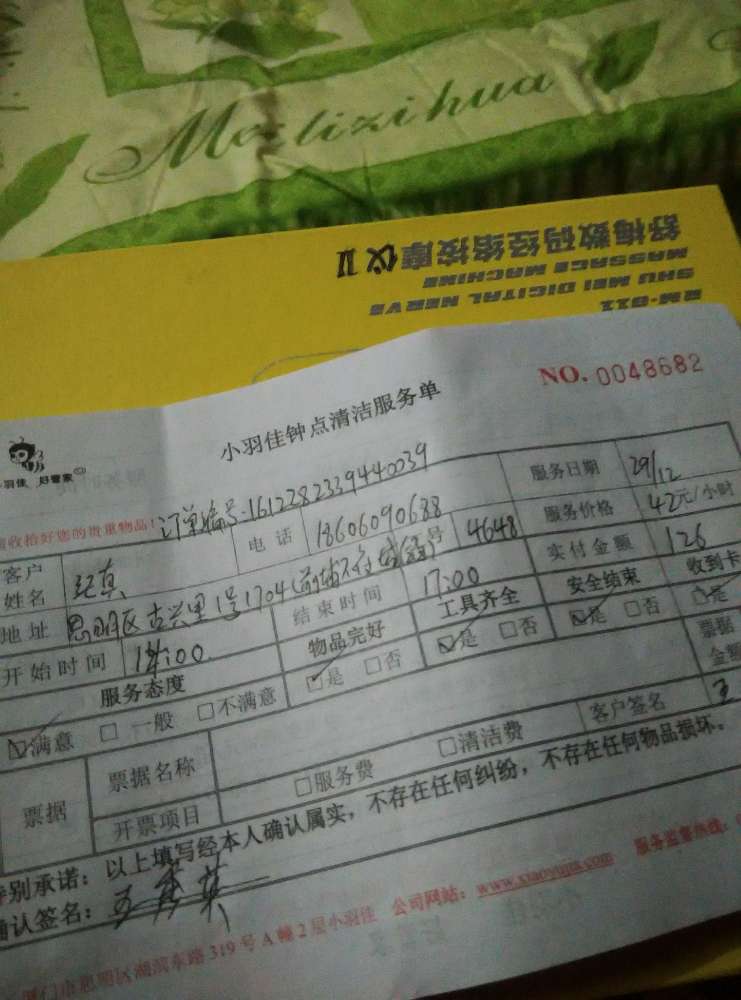 Meilizihua
舒梅数码经络按摩仪 II
SHU MEI DIGITAL NERVE
MASSAGE MACHINE
RM-811
NO. 0048682
小羽佳钟点清洁服务单
羽佳 好管家
收拾好您的贵重物品!
订单编号:1612282339440039
服务日期 29/12
客户姓名 电话 18606090688 4648 服务价格 42元/小时
地址 思明区古兴里1号1704 实付金额 126
开始时间 14:00 结束时间 17:00
服务态度 物品完好 工具齐全 安全结束 收到卡
☑满意 □一般 □不满意 ☑是 □否 ☑是 □否 ☑是 □否 □是
票据 票据名称 票据金额
开票项目 □服务费 □清洁费 客户签名
特别承诺:以上填写经本人确认属实,不存在任何纠纷,不存在任何物品损坏。
确认签名:
厦门市思明区湖滨东路319号A幢2层小羽佳 公司网站:www.xiaoyujia.com 服务监督热线: